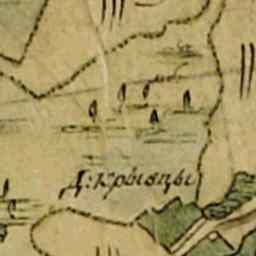 Д: Крывцы